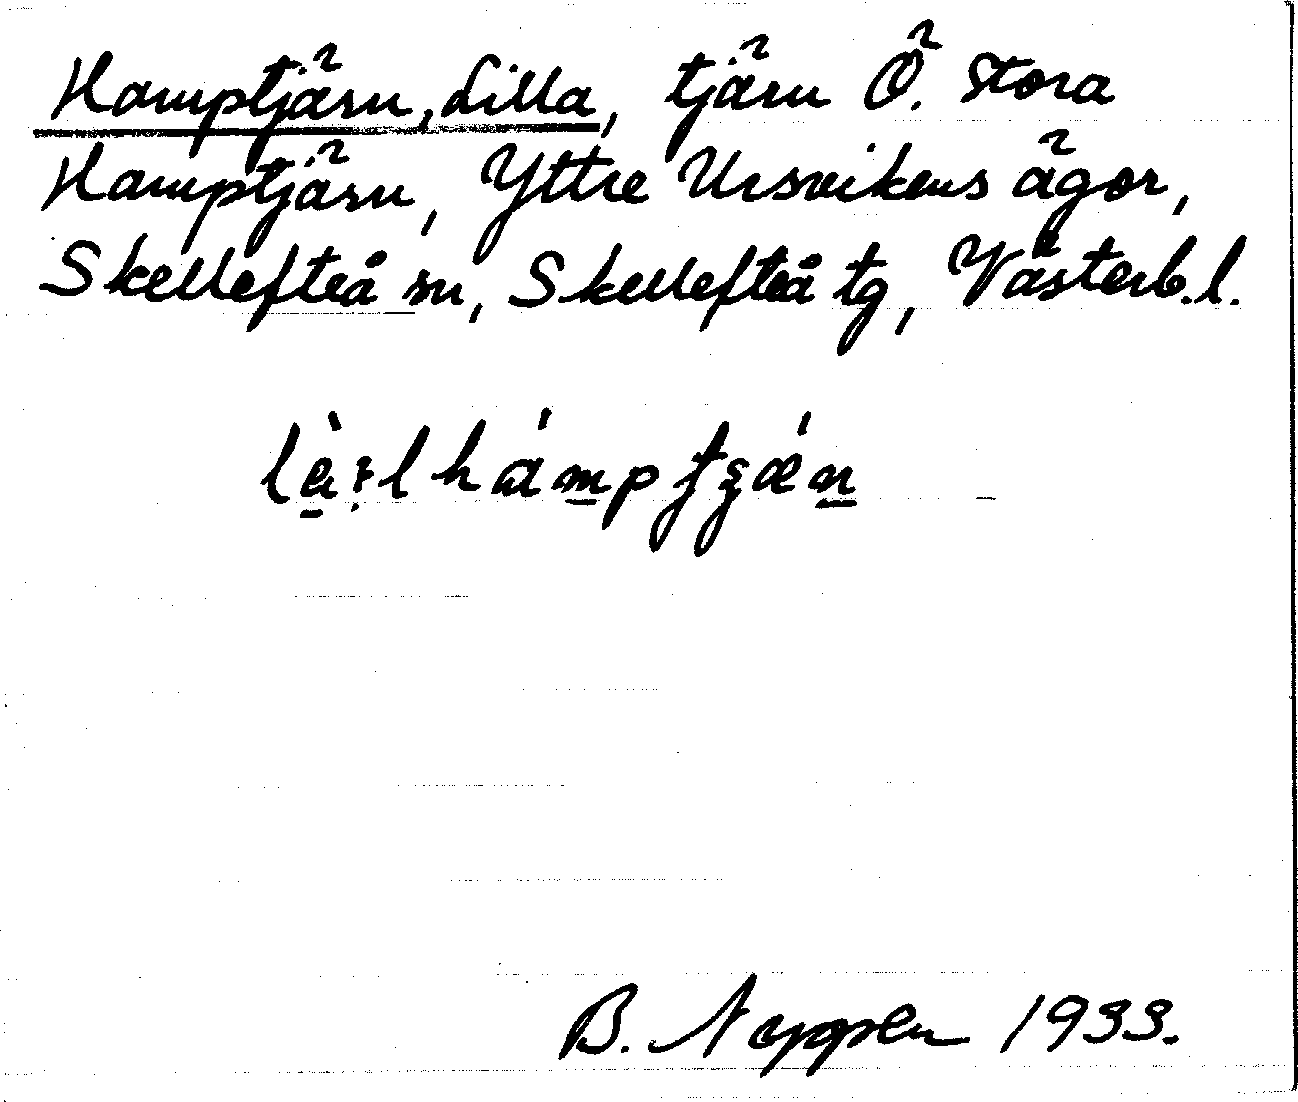 Hamptjärn, Lilla, tjärn Ö. Stora
Hamptjärn, Yttre Ursvikens ägor,
Skellefteå sn, Skellefteå tg, Västerb.l.
B. 1933.